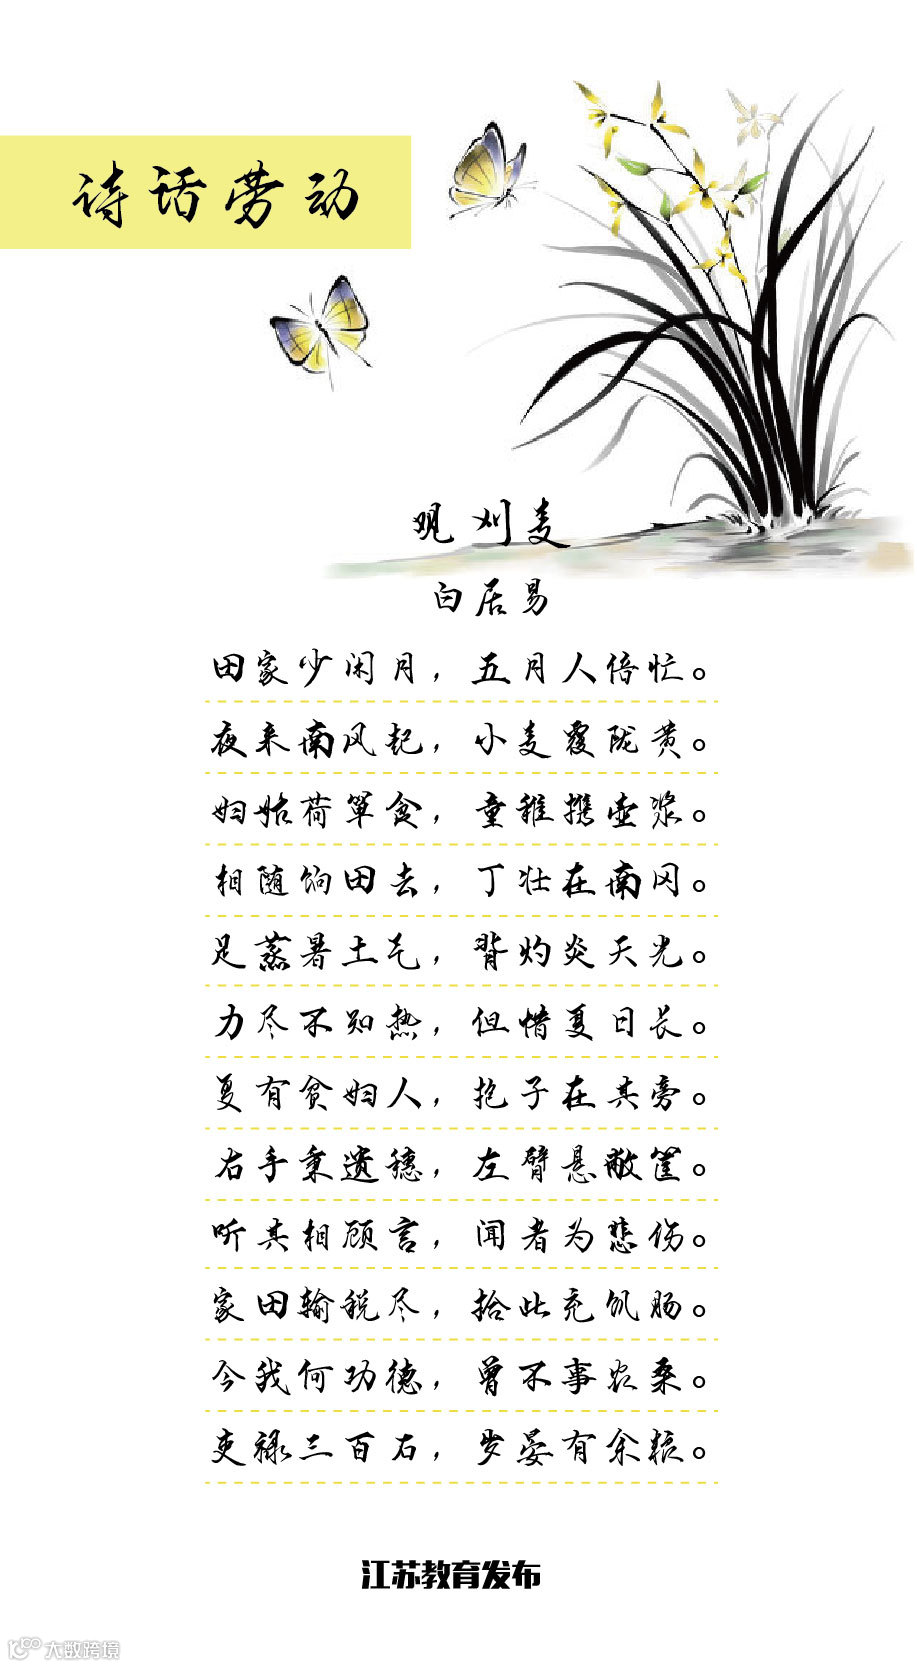 诗话劳动
观刈麦
白居易
田家少闲月，五月人倍忙。
夜来南风起，小麦覆陇黄。
妇姑荷箪食，童稚携壶浆。
相随饷田去，丁壮在南冈。
足蒸暑土气，背灼炎天光。
力尽不知热，但惜夏日长。
复有贫妇人，抱子在其旁。
右手秉遗穗，左臂悬敝筐。
听其相顾言，闻者为悲伤。
家田输税尽，拾此充饥肠。
今我何功德，曾不事农桑。
吏禄三百石，岁晏有余粮。
江苏教育发布
大数跨境